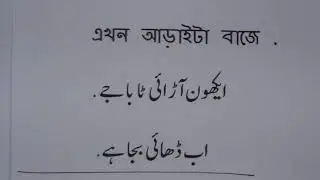 এখন আড়াইটা বাজে .
ایکھون آڑائی ٹا باجے .
اب ڈھائی بجا ہے .